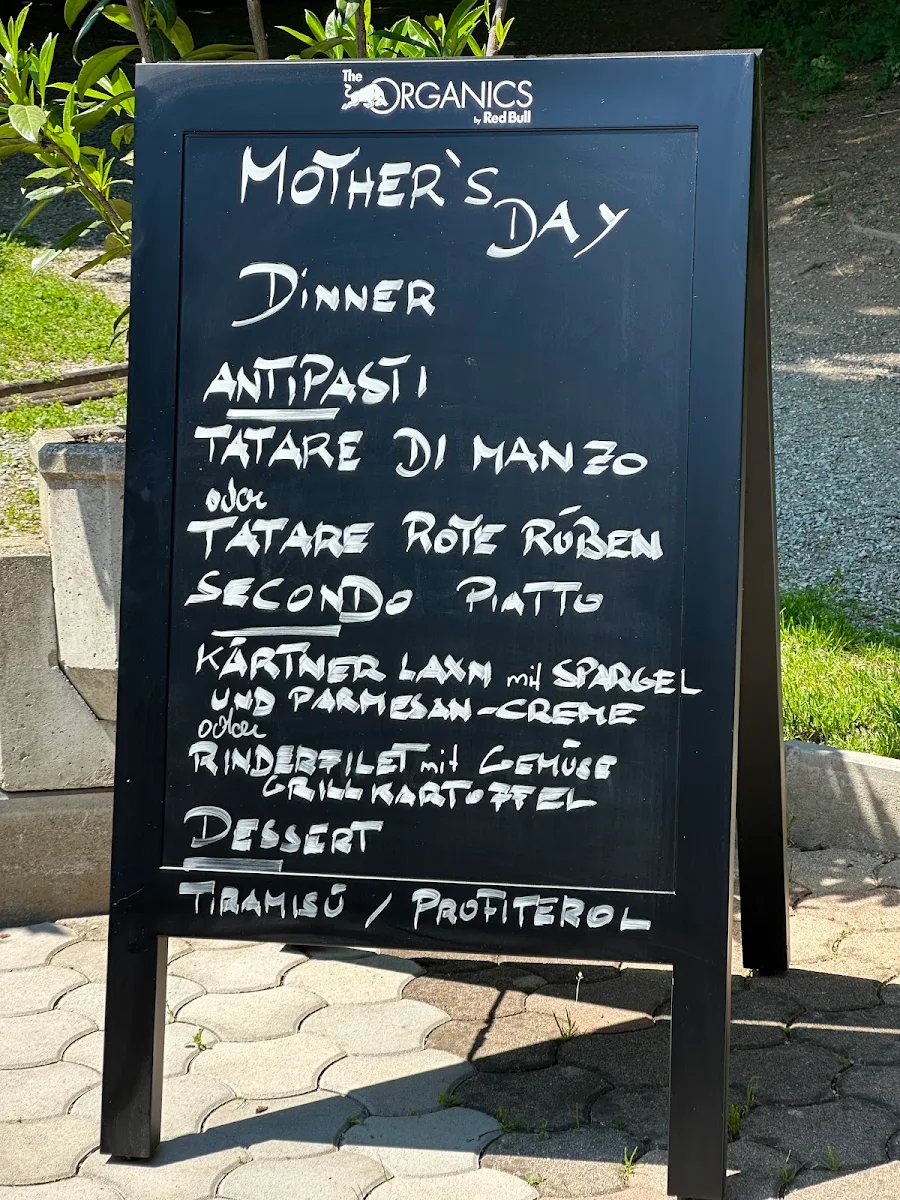 The
ORGANICS
by Red Bull
MOTHER`S
DAY
DINNER
ANTIPASTI
TATARE DI MANZO
oder
TATARE ROTE RÜBEN
SECONDO PIATTO
KÄRTNER LAXN mit SPARGEL
UND PARMESAN-CREME
oder
RINDERFILET mit GEMÜSE
GRILLKARTOFFEL
DESSERT
TIRAMISÚ / PROFITEROL